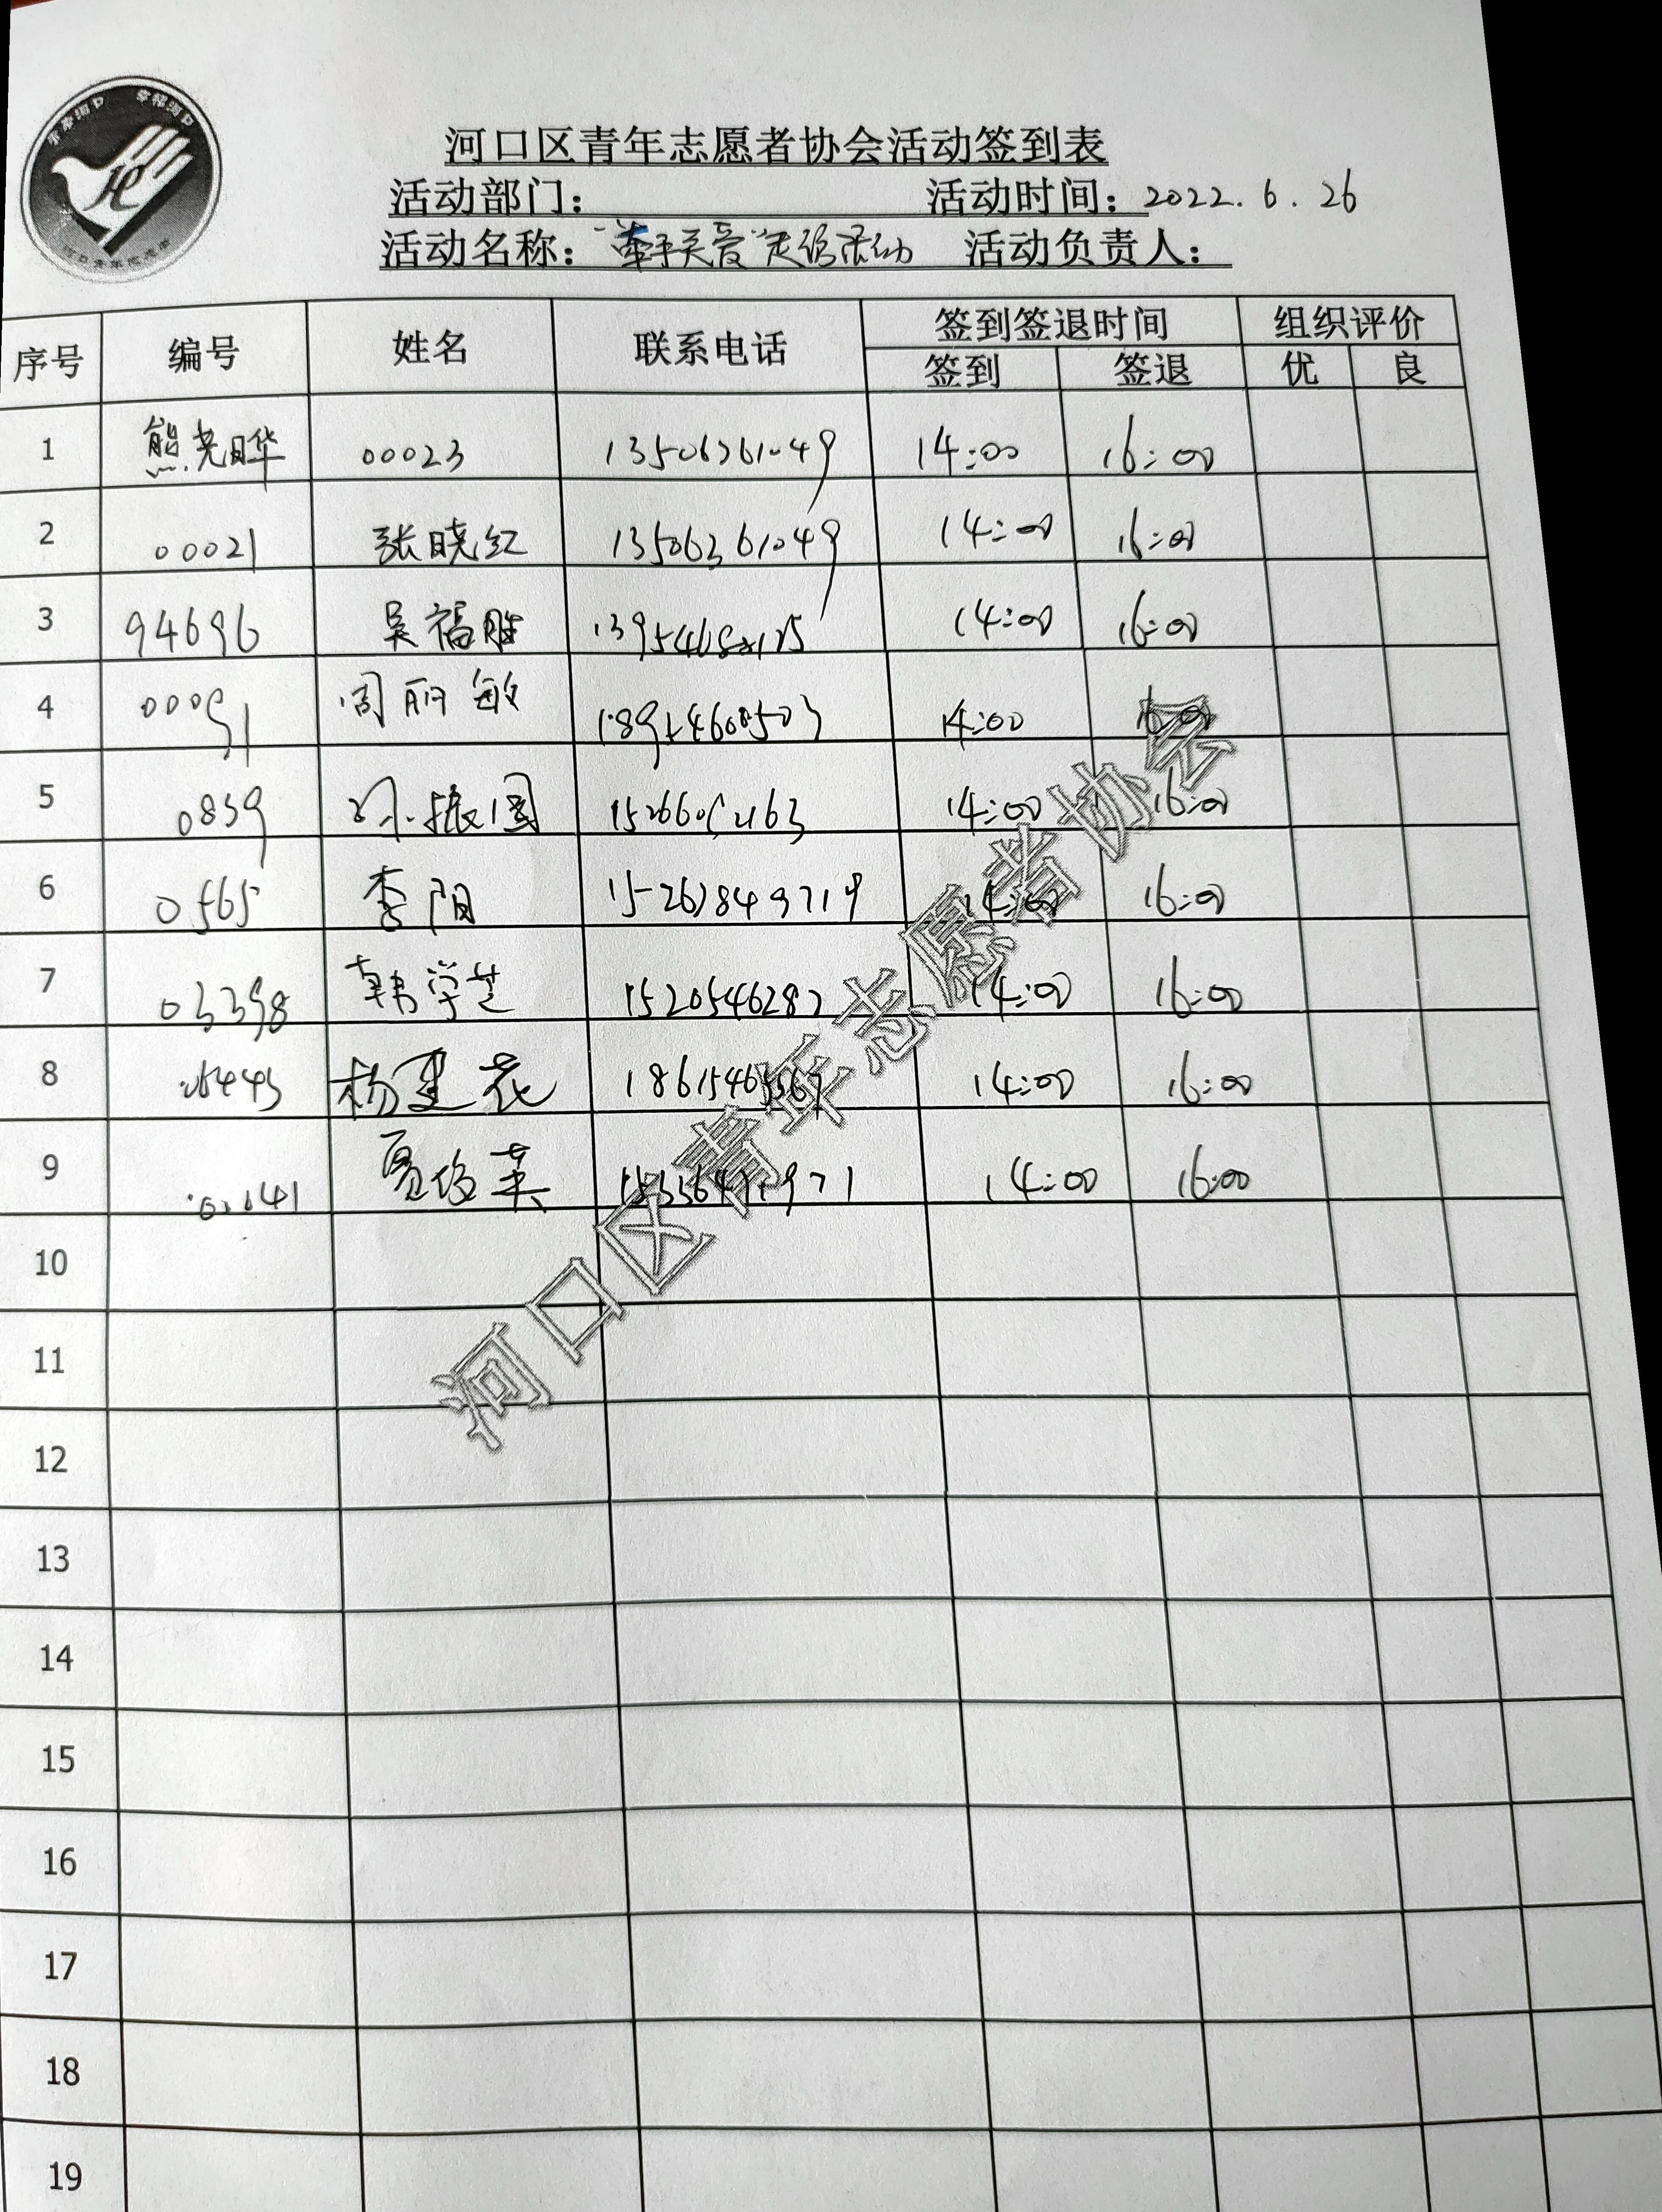 幸福河口
河口区青年志愿者协会活动签到表
活动部门： 活动时间：2022.6.26
活动名称："牵手关爱"走访活动 活动负责人：
序号 编号 姓名 联系电话 签到签退时间 组织评价
签到 签退 优 良
1 熊光晔 00023 13506361049 14:00 16:00
2 00021 张晓红 13506361049 14:00 16:00
3 94696 吴福胜 14:00 16:00
4 00091 周丽敏 14:00 16:00
5 0839 孙振国 14:00 16:00
6 0565 李阳 14:00 16:00
7 03398 韩学芝 1520546287 14:00 16:00
8 杨建花 14:00 16:00
9 14:00 16:00
10
11
12
13
14
15
16
17
18
19
河口区青年志愿者协会